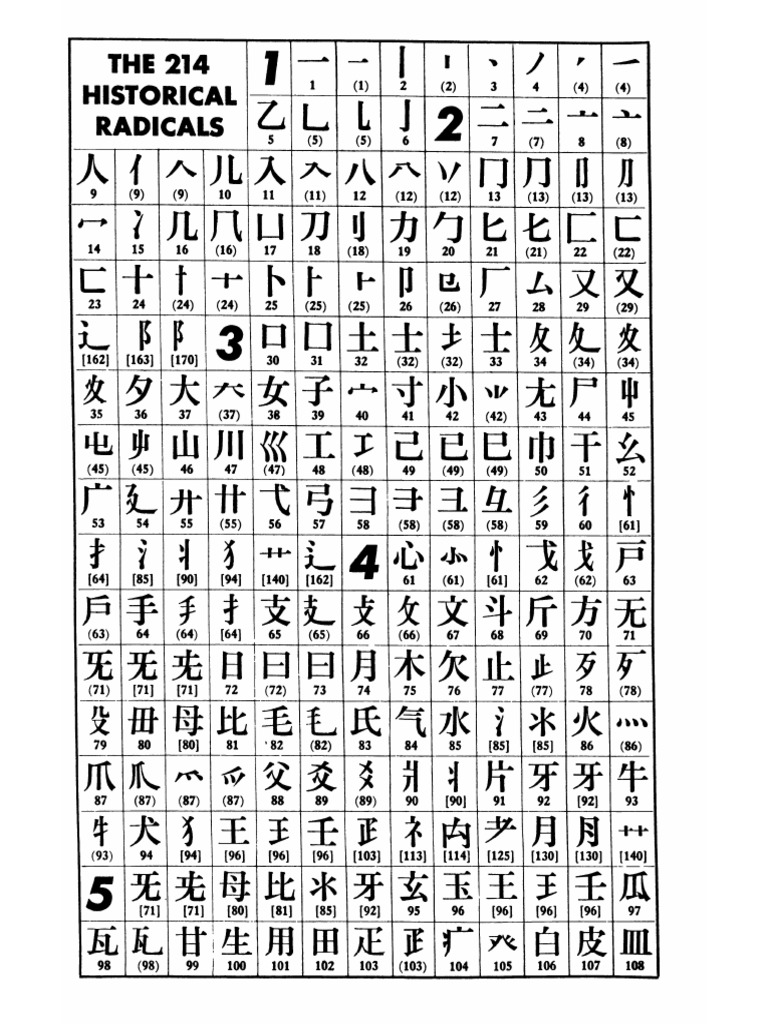 THE 214
HISTORICAL
RADICALS
1 一 一 丨 丨 丶 丿 ノ 一
1 (1) 2 (2) 3 4 (4) (4)
乙 乚 乚 亅 2 二 二 亠 亠
5 (5) (5) 6 7 (7) 8 (8)
人 亻 𠆢 儿 入 入 八 八 丷 冂 冂 冂 冂
9 (9) (9) 10 11 (11) 12 (12) (12) 13 (13) (13) (13)
冖 冫 几 几 凵 刀 刂 力 勹 匕 匕 匚 匚
14 15 16 (16) 17 18 (18) 19 20 21 (21) 22 (22)
匸 十 十 十 卜 卜 ⺊ 卩 㔾 厂 厶 又 又
23 24 (24) (24) 25 (25) (25) 26 (26) 27 28 29 (29)
辶 阝 阝 3 口 囗 土 士 土 士 夂 夂 夂
[162] [163] [170] 30 31 32 (32) (32) 33 34 (34) (34)
夊 夕 大 大 女 子 宀 寸 小 ⺌ 尢 尸 屮
35 36 37 (37) 38 39 40 41 42 (42) 43 44 45
屯 屮 山 川 巛 工 工 己 已 巳 巾 干 幺
(45) (45) 46 47 (47) 48 (48) 49 (49) (49) 50 51 52
广 廴 廾 廿 弋 弓 彐 彐 彐 彑 彡 彳 忄
53 54 55 (55) 56 57 58 (58) (58) (58) 59 60 [61]
扌 氵 丬 犭 艹 辶 4 心 㣺 忄 戈 戈 戸
[64] [85] [90] [94] [140] [162] 61 (61) [61] 62 (62) 63
戶 手 手 扌 支 支 攴 攵 文 斗 斤 方 无
(63) 64 (64) [64] 65 (65) 66 (66) 67 68 69 70 71
旡 旡 旡 日 曰 曰 月 木 欠 止 止 歹 歹
(71) [71] [71] 72 (72) 73 74 75 76 77 (77) 78 (78)
殳 毌 母 比 毛 毛 氏 气 水 氵 氺 火 灬
79 80 [80] 81 82 (82) 83 84 85 [85] [85] 86 (86)
爪 爪 爫 爫 父 爻 爻 爿 丬 片 牙 牙 牛
87 (87) (87) (87) 88 89 (89) 90 [90] 91 92 [92] 93
牜 犬 犭 王 王 壬 𤴔 礻 禸 耂 月 月 艹
(93) 94 [94] [96] [96] [96] [103] [113] [114] [125] [130] [130] [140]
5 旡 旡 母 比 氺 牙 玄 玉 王 王 壬 瓜
[71] [71] [80] [81] [85] [92] 95 96 [96] [96] [96] 97
瓦 瓦 甘 生 用 田 疋 𤴔 疒 癶 白 皮 皿
98 (98) 99 100 101 102 103 (103) 104 105 106 107 108